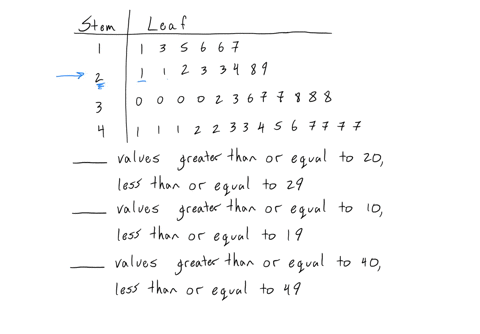 Stem Leaf
1 1 3 5 6 6 7
2 1 1 2 3 3 4 8 9
3 0 0 0 0 2 3 6 7 7 8 8 8
4 1 1 1 2 2 3 3 4 5 6 7 7 7 7
____ values greater than or equal to 20,
less than or equal to 29
____ values greater than or equal to 10,
less than or equal to 19
____ values greater than or equal to 40,
less than or equal to 49